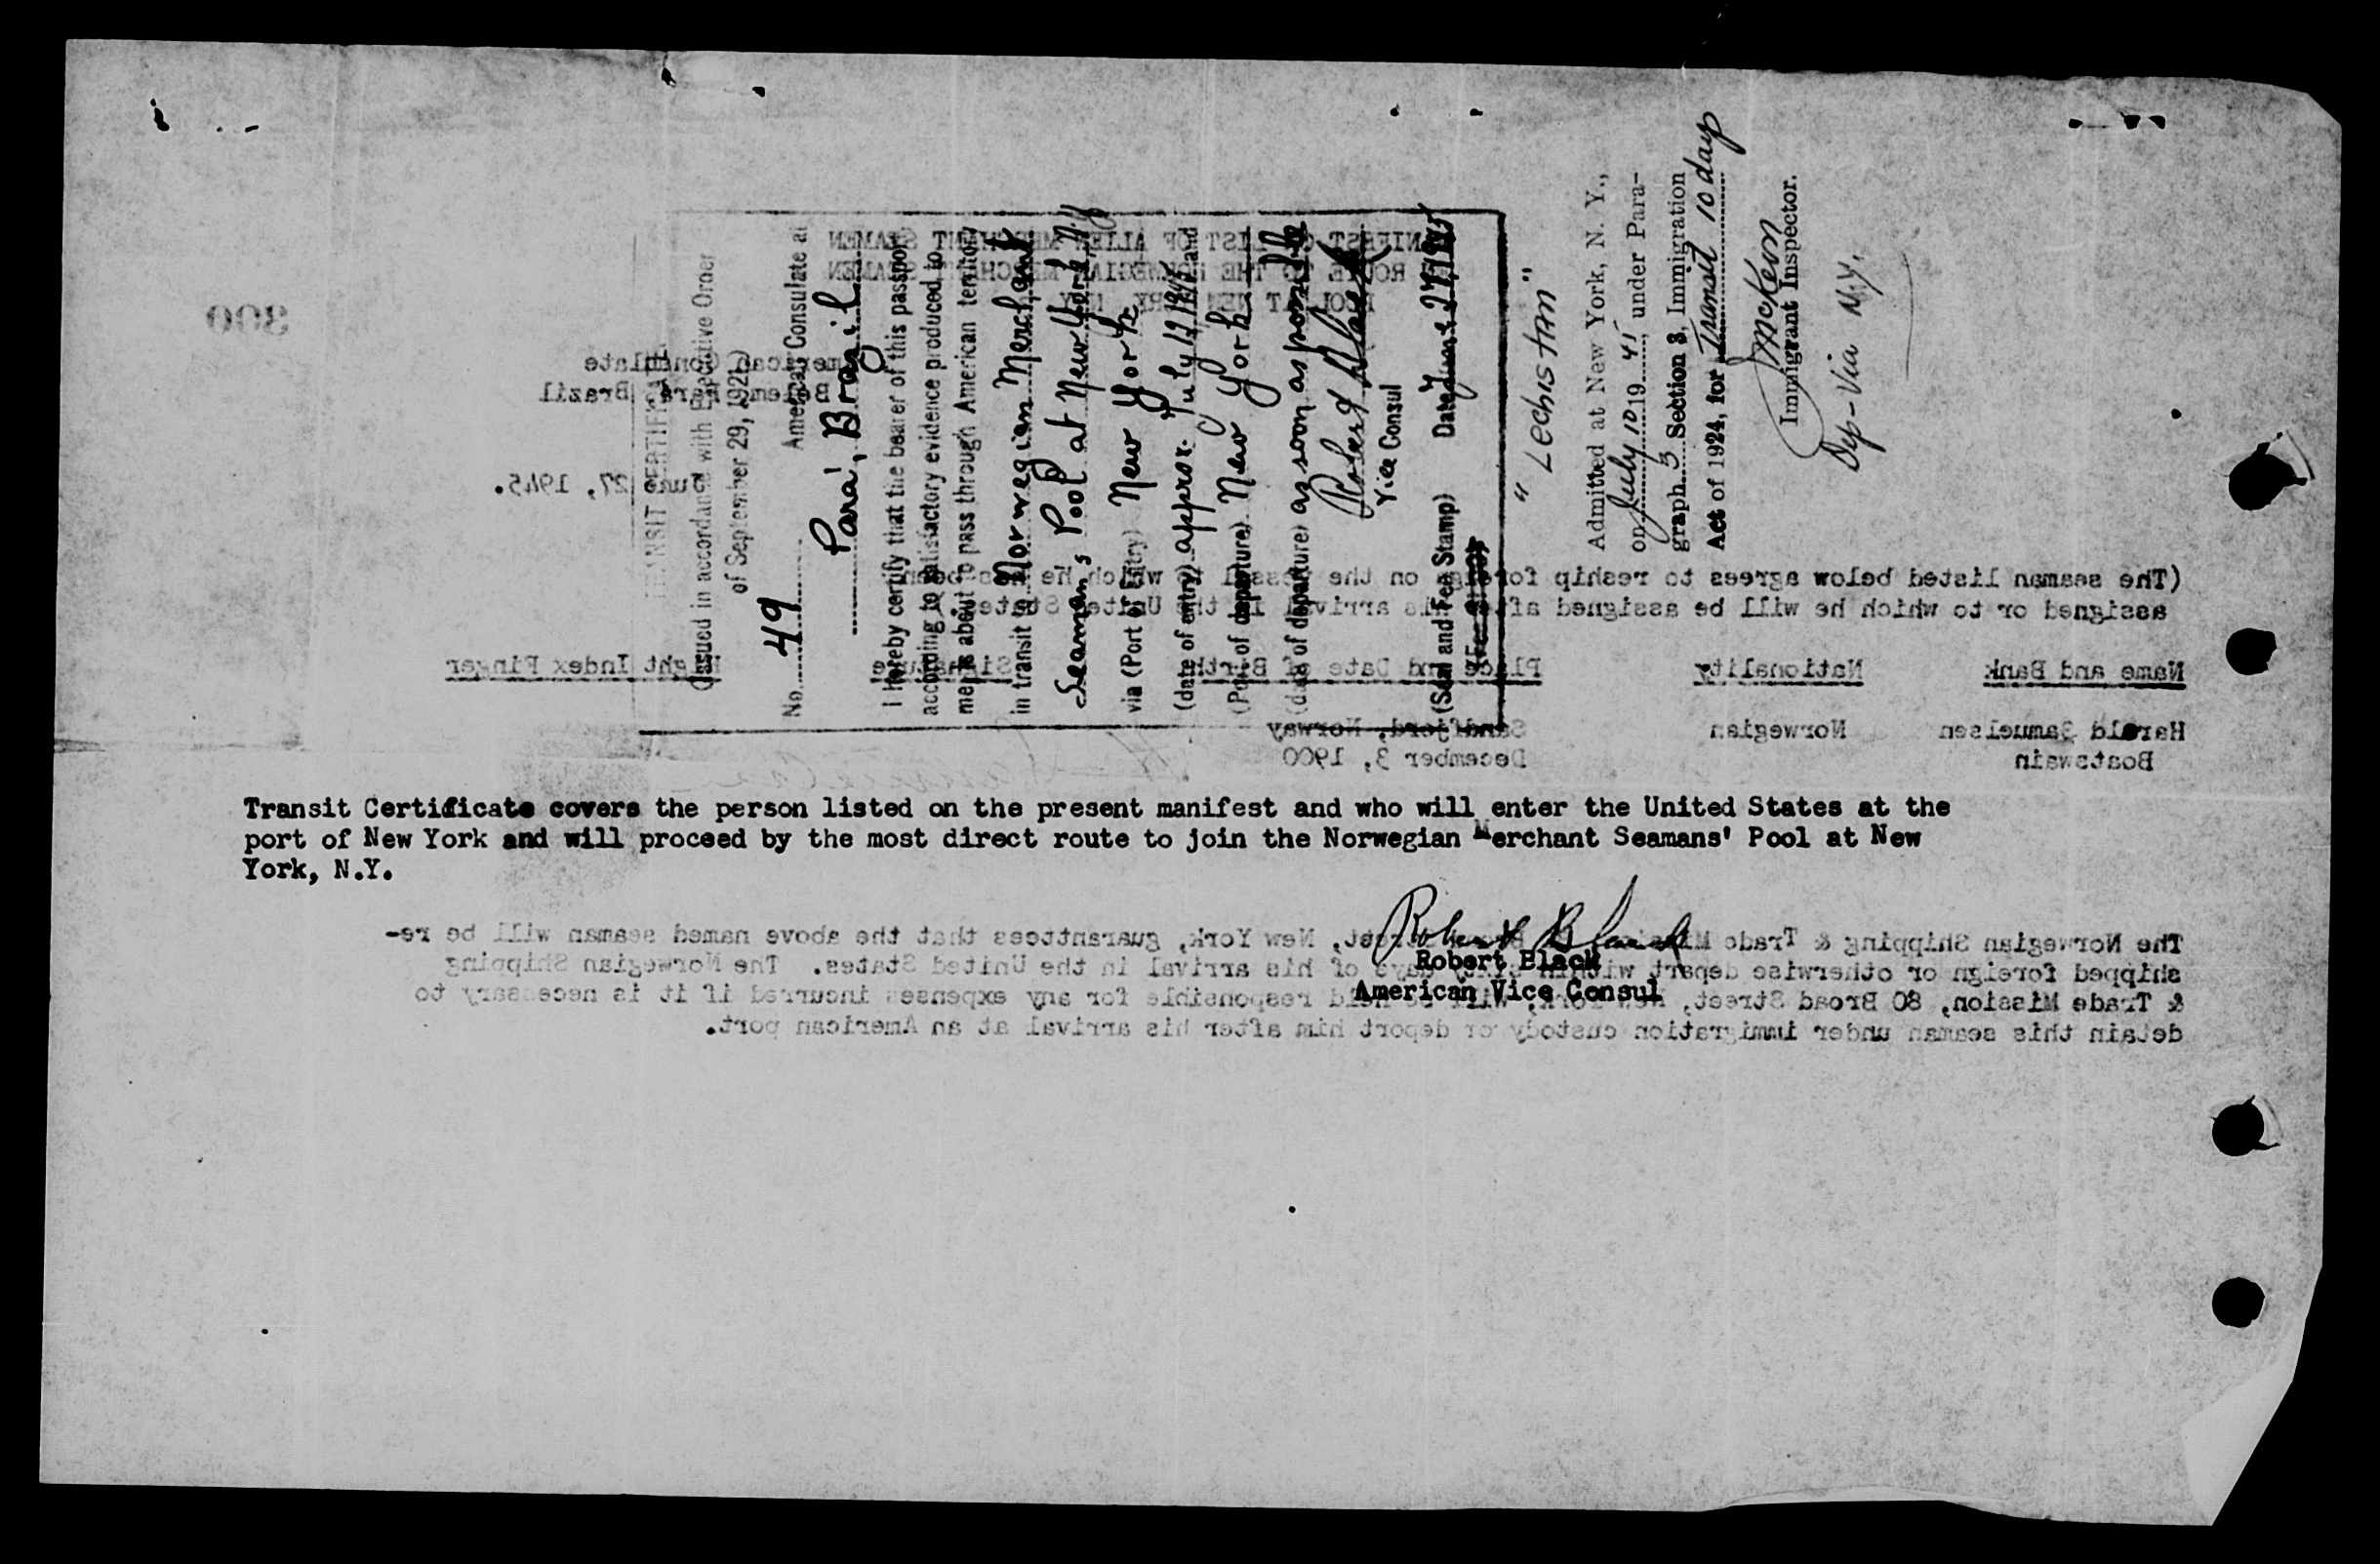 TRANSIT CERTIFICATE
(Issued in accordance with Executive Order
of September 29, 1921)
No. 49 American Consulate at
Para, Brazil
I hereby certify that the bearer of this passport
according to satisfactory evidence produced to
me is about to pass through American territory
in transit to Norwegian Merchant
Seamans Pool at New York N.Y.
via (Port of Entry) New York
(date of entry) approx. July and
(Port of departure) New York
(date of departure) as soon as possible
Robert Black
Vice Consul
(Seal and Fee Stamp) Date June 27, 1945
"LECHISTAN"
Admitted at New York, N. Y.,
on July 10 19 , under Para-
graph 3 Section 3, Immigration
Act of 1924, for Transit 10 day
Immigrant Inspector.
Dep-Via N.Y.
300
MANIFEST OR LIST OF ALIEN MERCHANT SEAMEN
ROUTE TO THE NORWEGIAN MERCHANT SEAMEN
POOL AT NEW YORK, N.Y.
American Consulate
Belem, Para, Brazil
June 27, 1945.
(The seaman listed below agrees to reship foreign on the vessel to which he has been
assigned or to which he will be assigned after his arrival in the United States.)
Name and Bank Nationality Place and Date of Birth Signature Right Index Finger
Harald Samuelsen Norwegian Sandfjord, Norway
Boatswain December 3, 1900
Transit Certificate covers the person listed on the present manifest and who will enter the United States at the
port of New York and will proceed by the most direct route to join the Norwegian Merchant Seamans' Pool at New
York, N.Y.
Robert Black
Robert Black
American Vice Consul
The Norwegian Shipping & Trade Mission, Broad Street, New York, guaranttees that the above named seaman will be re-
shipped foreign or otherwise depart within days of his arrival in the United States. The Norwegian Shipping
& Trade Mission, 80 Broad Street, New York, will responsible for any expenses incurred if it is necessary to
detain this seaman under immigration custody or deport him after his arrival at an American port.